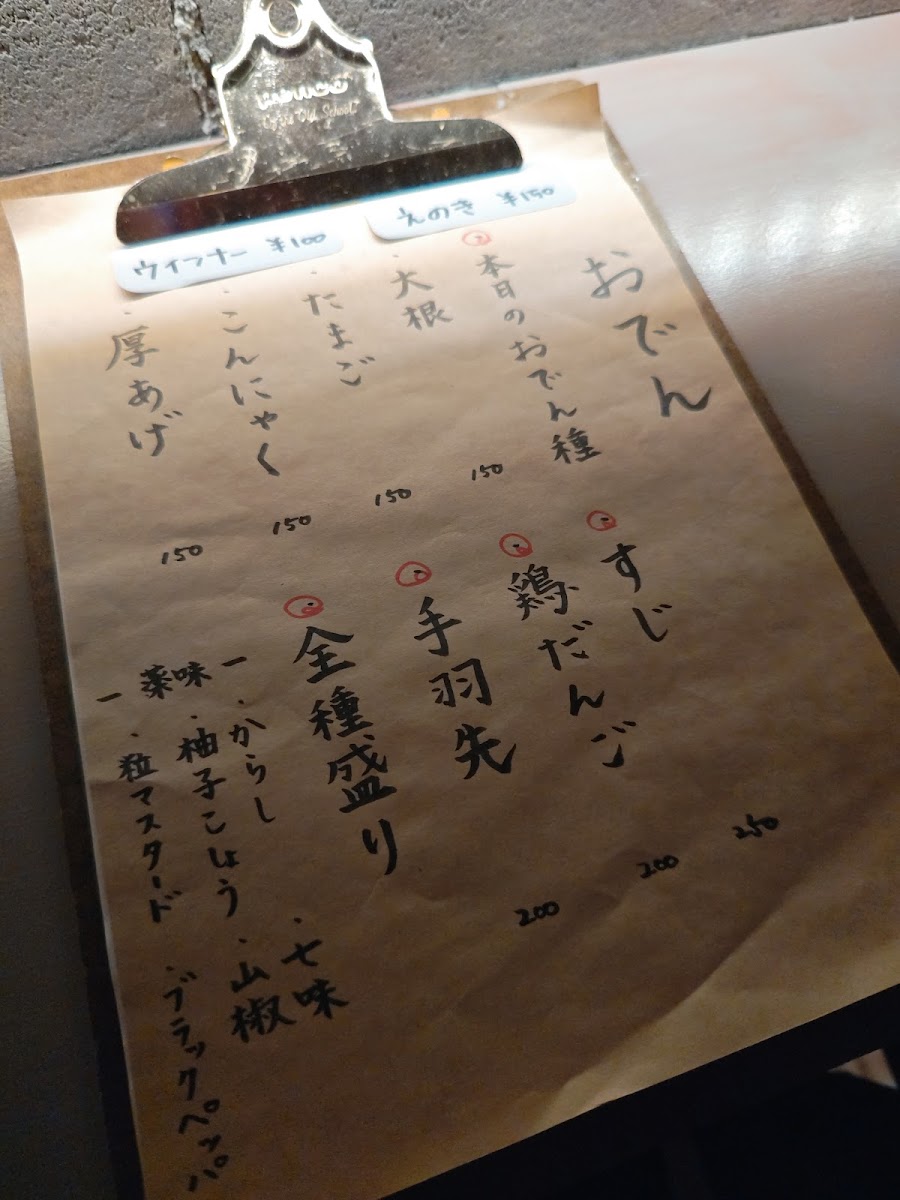 Old School
えのき ¥150
ウインナー ¥100
おでん
本日のおでん種
・大根 150
・たまご 150
・こんにゃく 150
・厚あげ 150
すじ 250
鶏だんご 200
手羽先 200
全種盛り
ー薬味ー
・からし
・柚子こしょう
・粒マスタード
・七味
・山椒
・ブラックペッパ